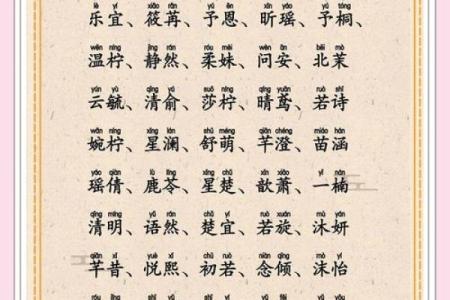 lè yí xiǎo rǎn yǔ ēn xīn yáo yǔ tóng
乐宜、筱苒、予恩、昕瑶、予桐、
wēn níng jìng rán róu mèi wèn ān běi mò
温柠、静然、柔妹、问安、北茉
yún yù qīng yú shā níng qíng yuān ruò shī
云毓、清俞、莎柠、晴鸢、若诗
wǎn níng xīng lán shū méng qiān chéng miáo hán
婉柠、星澜、舒萌、芊澄、苗涵
yáo qiàn lù líng xīng chǔ xīn xiāo yī nán
瑶倩、鹿苓、星楚、歆萧、一楠
qīng míng yǔ rán chǔ yí ruò xuán mù yán
清明、语然、楚宜、若旋、沐妍
qiān xī yuè xī chū ruò niàn qīng mò yí
芊昔、悦熙、初若、念倾、沫怡